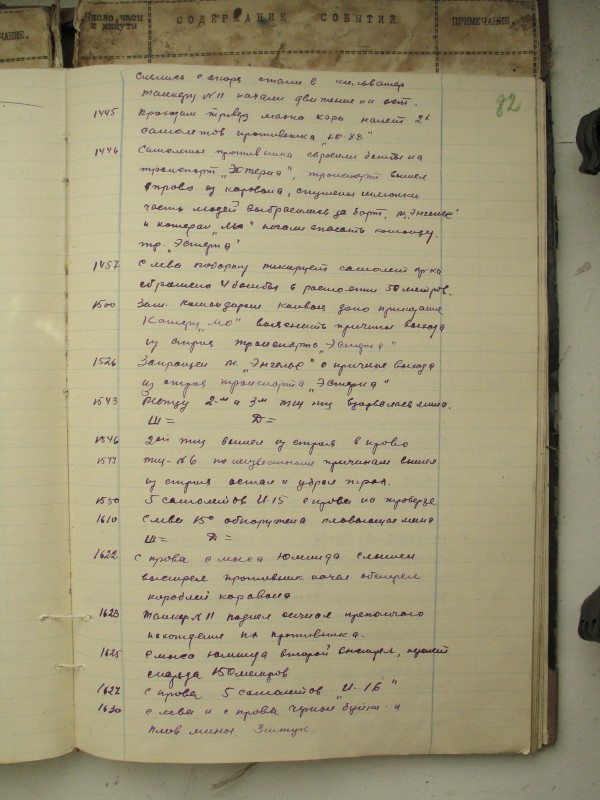 ЧАНИЕ.
Число, часы и минуты
СОДЕРЖАНИЕ СОБЫТИЙ
ПРИМЕЧАНИЕ
82
снялись с якоря стали в кильватер
танкеру N 11 начали движение на ост.
1445 Проходим траверз маяка Кэри налет 2х
самолетов противника "Ю-88"
1446 Самолеты противника сбросили бомбы на
транспорт "Эстерна", транспорт вышел
вправо из каравана, спущены шлюпки
часть людей выбросились за борт. м. "Энгельс"
и катера "МО" начали спасать команду.
тр. "Эстерна"
1457 Слева по борту пикирует самолет пр-ка
сброшено 4 бомбы в расстоянии 50 метров.
1500 Зам. командира конвоя дано приказание
Катеру "МО" выяснить причины выхода
из строя транспорта "Эстерна"
1526 Запрошен м. "Энгельс" о причине выхода
из строя транспорта "Эстерна"
1543 Между 2-м и 3м тщ взорвалась мина.
Ш= Д=
1546 2ой тщ вышел из строя вправо
1547 тщ-N6 по неизвестным причинам вышел
из строя остал и убрал трал.
1550 5 самолетов И-15 справа на траверзе
1610 Слева 15° обнаружена плавающая мина
Ш= Д=
1622 Справа с мыса Юминда слышен
выстрел противник начал обстрел
кораблей каравана
1623 Танкер N 11 поднял сигнал
нахождение пл противника.
1625 С мыса Юминда второй выстрел, недолет
снаряда 150 метров
1627 Справа 5 самолетов "И-16"
1630 Слева и справа черные буйки и
плав мины 3 штук.